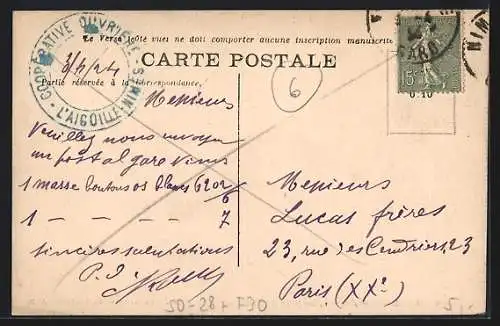 COOPÉRATIVE OUVRIÈRE
L'AIGOUAL
Le Verso des vues ne doit comporter aucune inscription manuscrite
CARTE POSTALE
Partie réservée à la correspondance.
GARD
15c
0.10
NIM
3/3/24
6
Messieurs
Veuillez nous envoyer
un postal gare
1 masse boutons os blancs 6202/6
1 — — — — 7
sincères salutations
P.
Messieurs
Lucas frères
23, rue des Cendriers, 23
Paris (XXe)
50=28 + F30